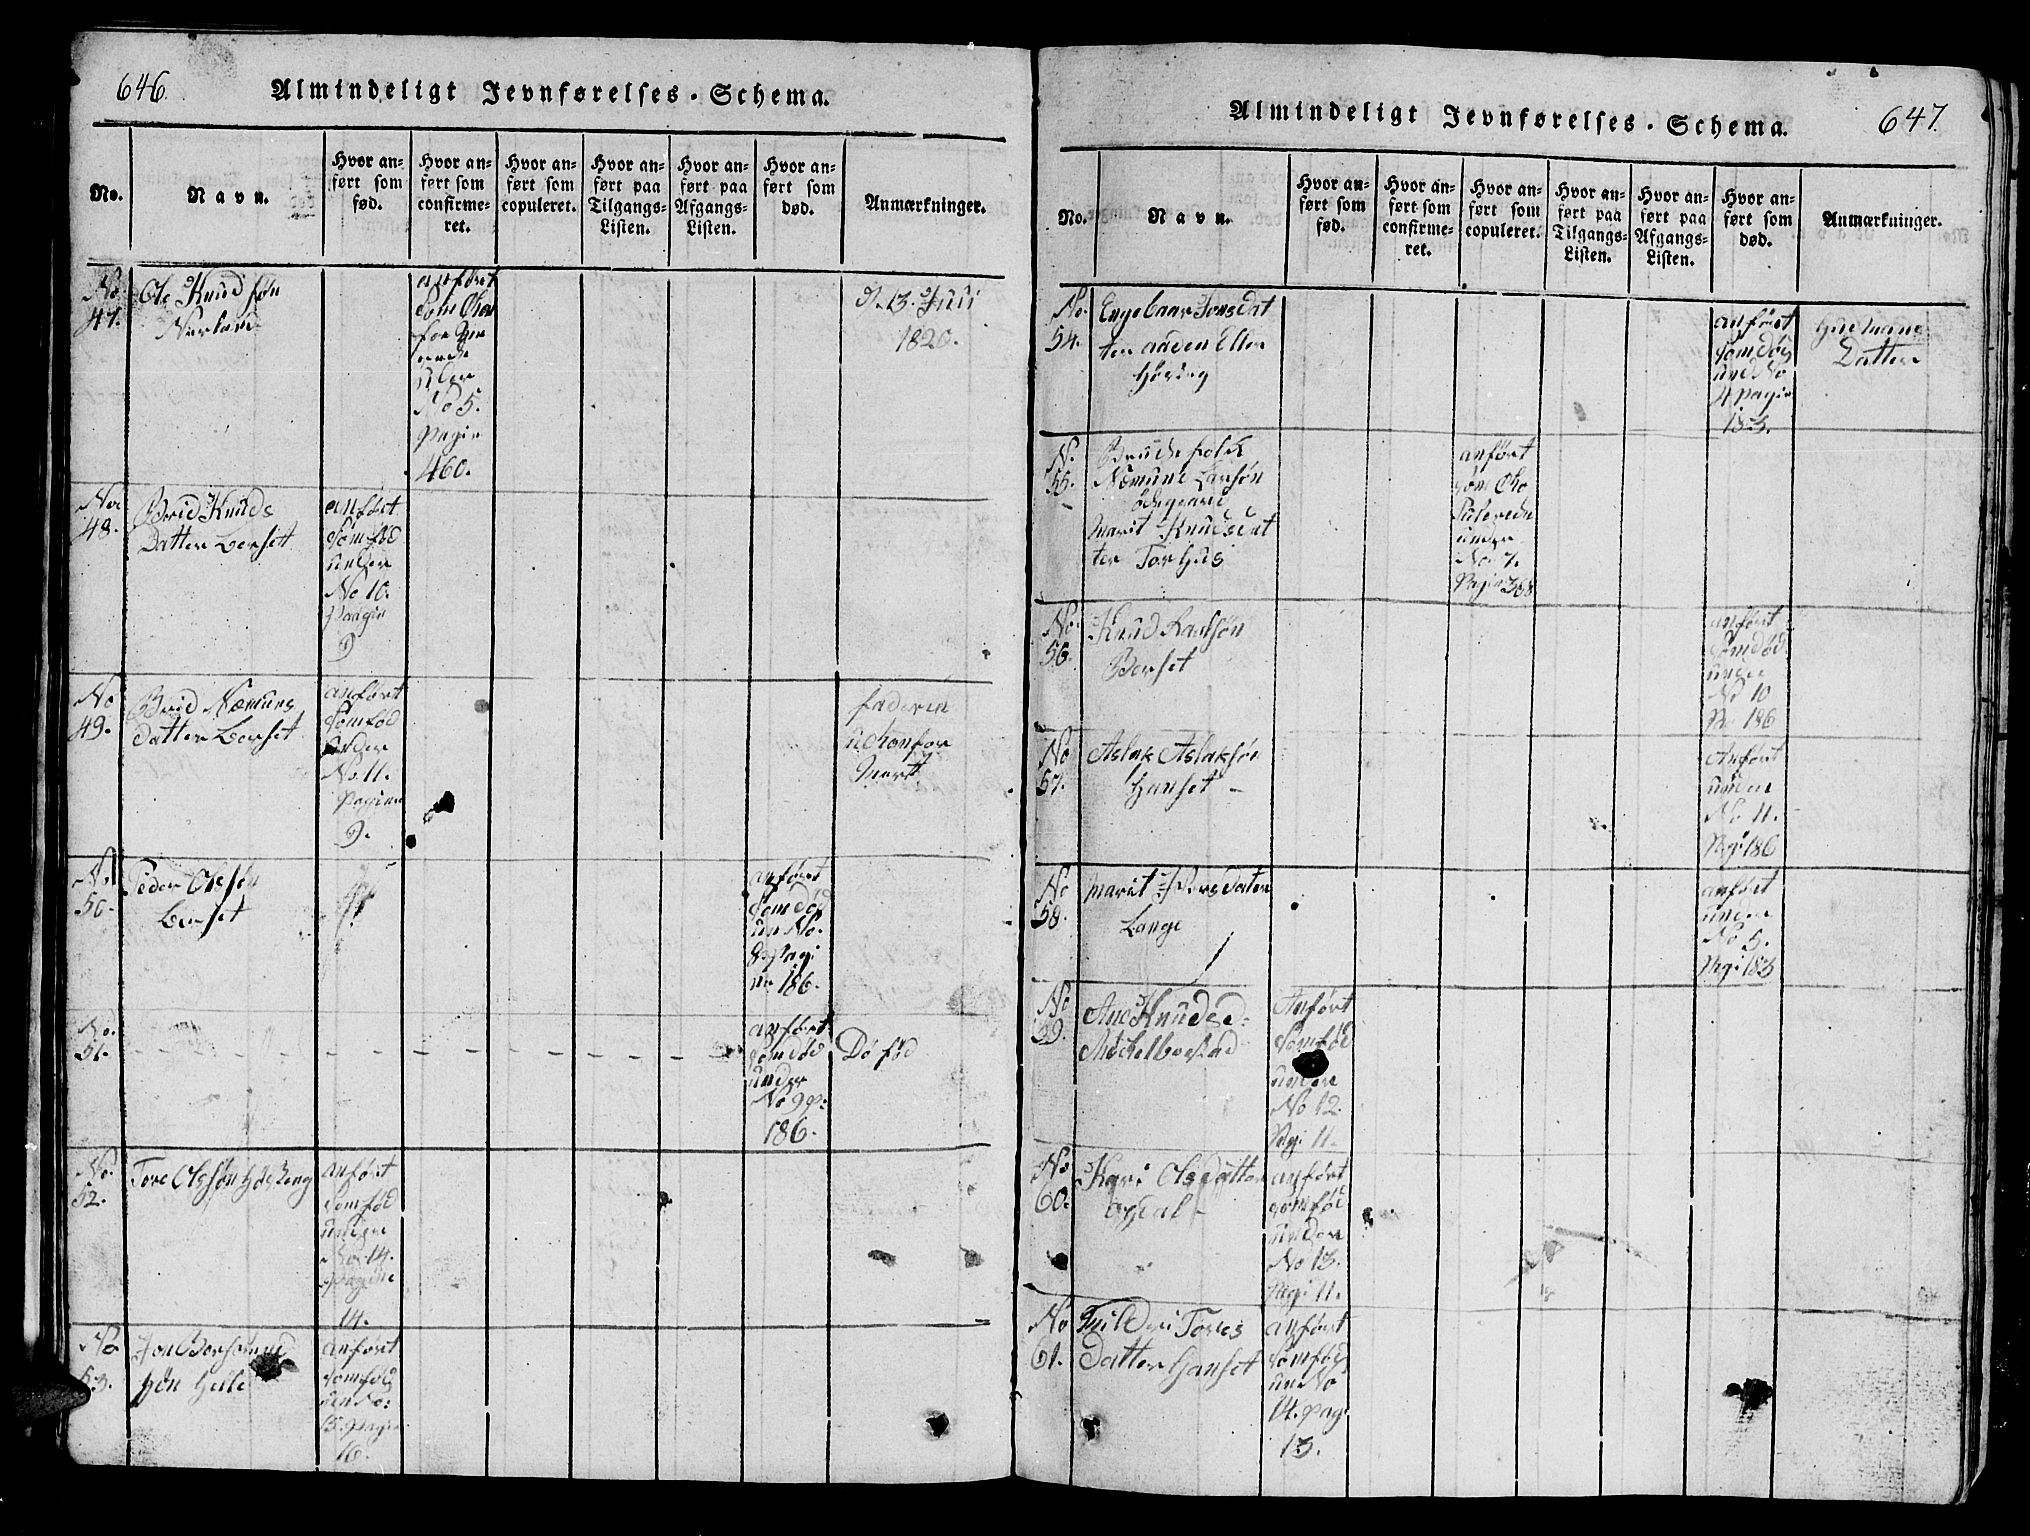 646.
Almindeligt Jevnførelses-Schema.
No.
Navn.
Hvor an-
ført som
fød.
Hvor an-
ført som
confirme-
ret.
Hvor an-
ført som
copuleret.
Hvor an-
ført paa
Tilgangs-
Listen.
Hvor an-
ført paa
Afgangs-
Listen.
Hvor an-
ført som
død.
Anmærkninger.
No
47.
Ole Knudsøn
anført
No 5.
Pagin
460.
13 Juli
1820.
No
48.
Brid Knuds
Datter Berset
anført
som fød
under
No 10.
Paagin
9
No
49.
Brid Næmuns
datter Berset
anført
som fød
under
No. 11.
Pagina
9.
faderen
No
50.
Peder Olesøn
Berset
anført
som død
un No.
8 Pagi
na 186.
No.
51.
anført
som død
under
No 9 p:
186.
Dø fød
No.
52.
Tore Olesøn
anført
som fød
under
No. 14.
Pagine
14.
No
53.
Jon
søn Helle
anført
som fød
un No:
15. pagin
16.
647.
Almindeligt Jevnførelses-Schema.
No.
Navn.
Hvor an-
ført som
fød.
Hvor an-
ført som
confirme-
ret.
Hvor an-
ført som
copuleret.
Hvor an-
ført paa
Tilgangs-
Listen.
Hvor an-
ført paa
Afgangs-
Listen.
Hvor an-
ført som
død.
Anmærkninger.
No.
54.
Engebaar Jonsdat
ter
anført
som død
und No
4 pagin
183.
Datter
N.
55.
Brudefolk
Næmund Larsøn
Ødegaard
Marit Knudsdat
ter Torhus
anført
som Co
pulerede
under
No. 7.
Pagin 368
No.
56.
Knud
Berset
anført
som død
under
No 10
Pa 186
No
57.
Aslak Aslaksøn
Hanset -
Anført
under
No 11.
Pagi 186
No
58.
Marit datter
Lange
anført
under
No 5.
Pagi 183
No
59.
Ane Knudsd:
Møckelbostad
Anført
som fød
under
No 12.
Pagi 11.
No
60.
Kari Olsdatter
anført
som fød
under
No 13.
Pagi 11.
No
61.
Torres
datter Hanset
anført
som fød
un No
14. pag:
13.